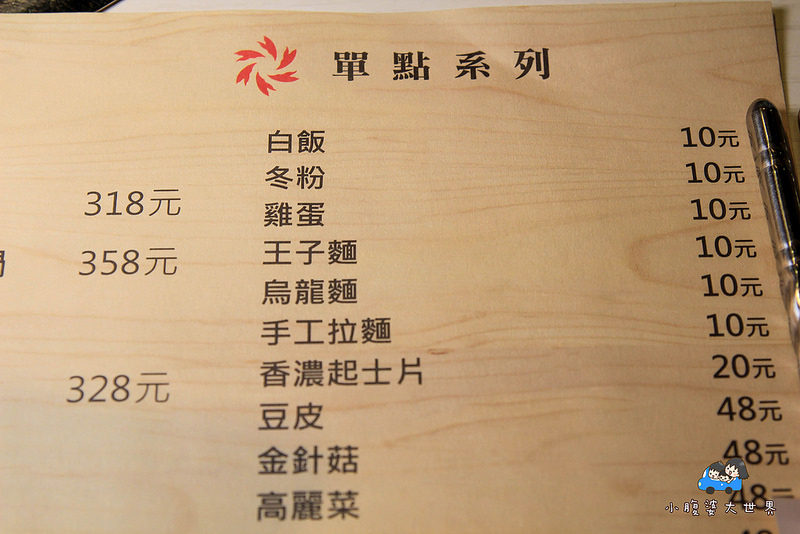 單點系列
白飯 10元
冬粉 10元
318元
雞蛋 10元
王子麵 10元
358元
烏龍麵 10元
手工拉麵 10元
香濃起士片 20元
328元
豆皮 48元
金針菇 48元
高麗菜 48元
小腹婆大世界